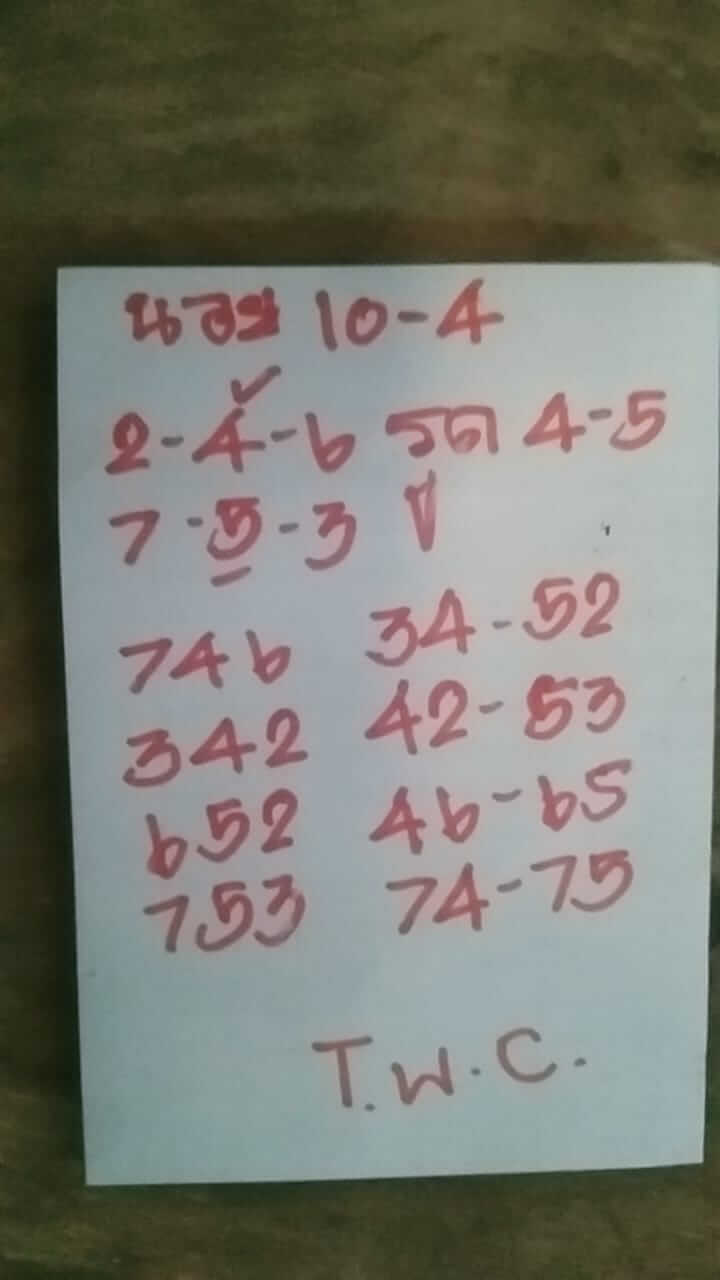 นอย 10-4
2-4-6 รูด 4-5
7-5-3
746 34-52
342 42-53
652 46-65
753 74-75
T.W.C.